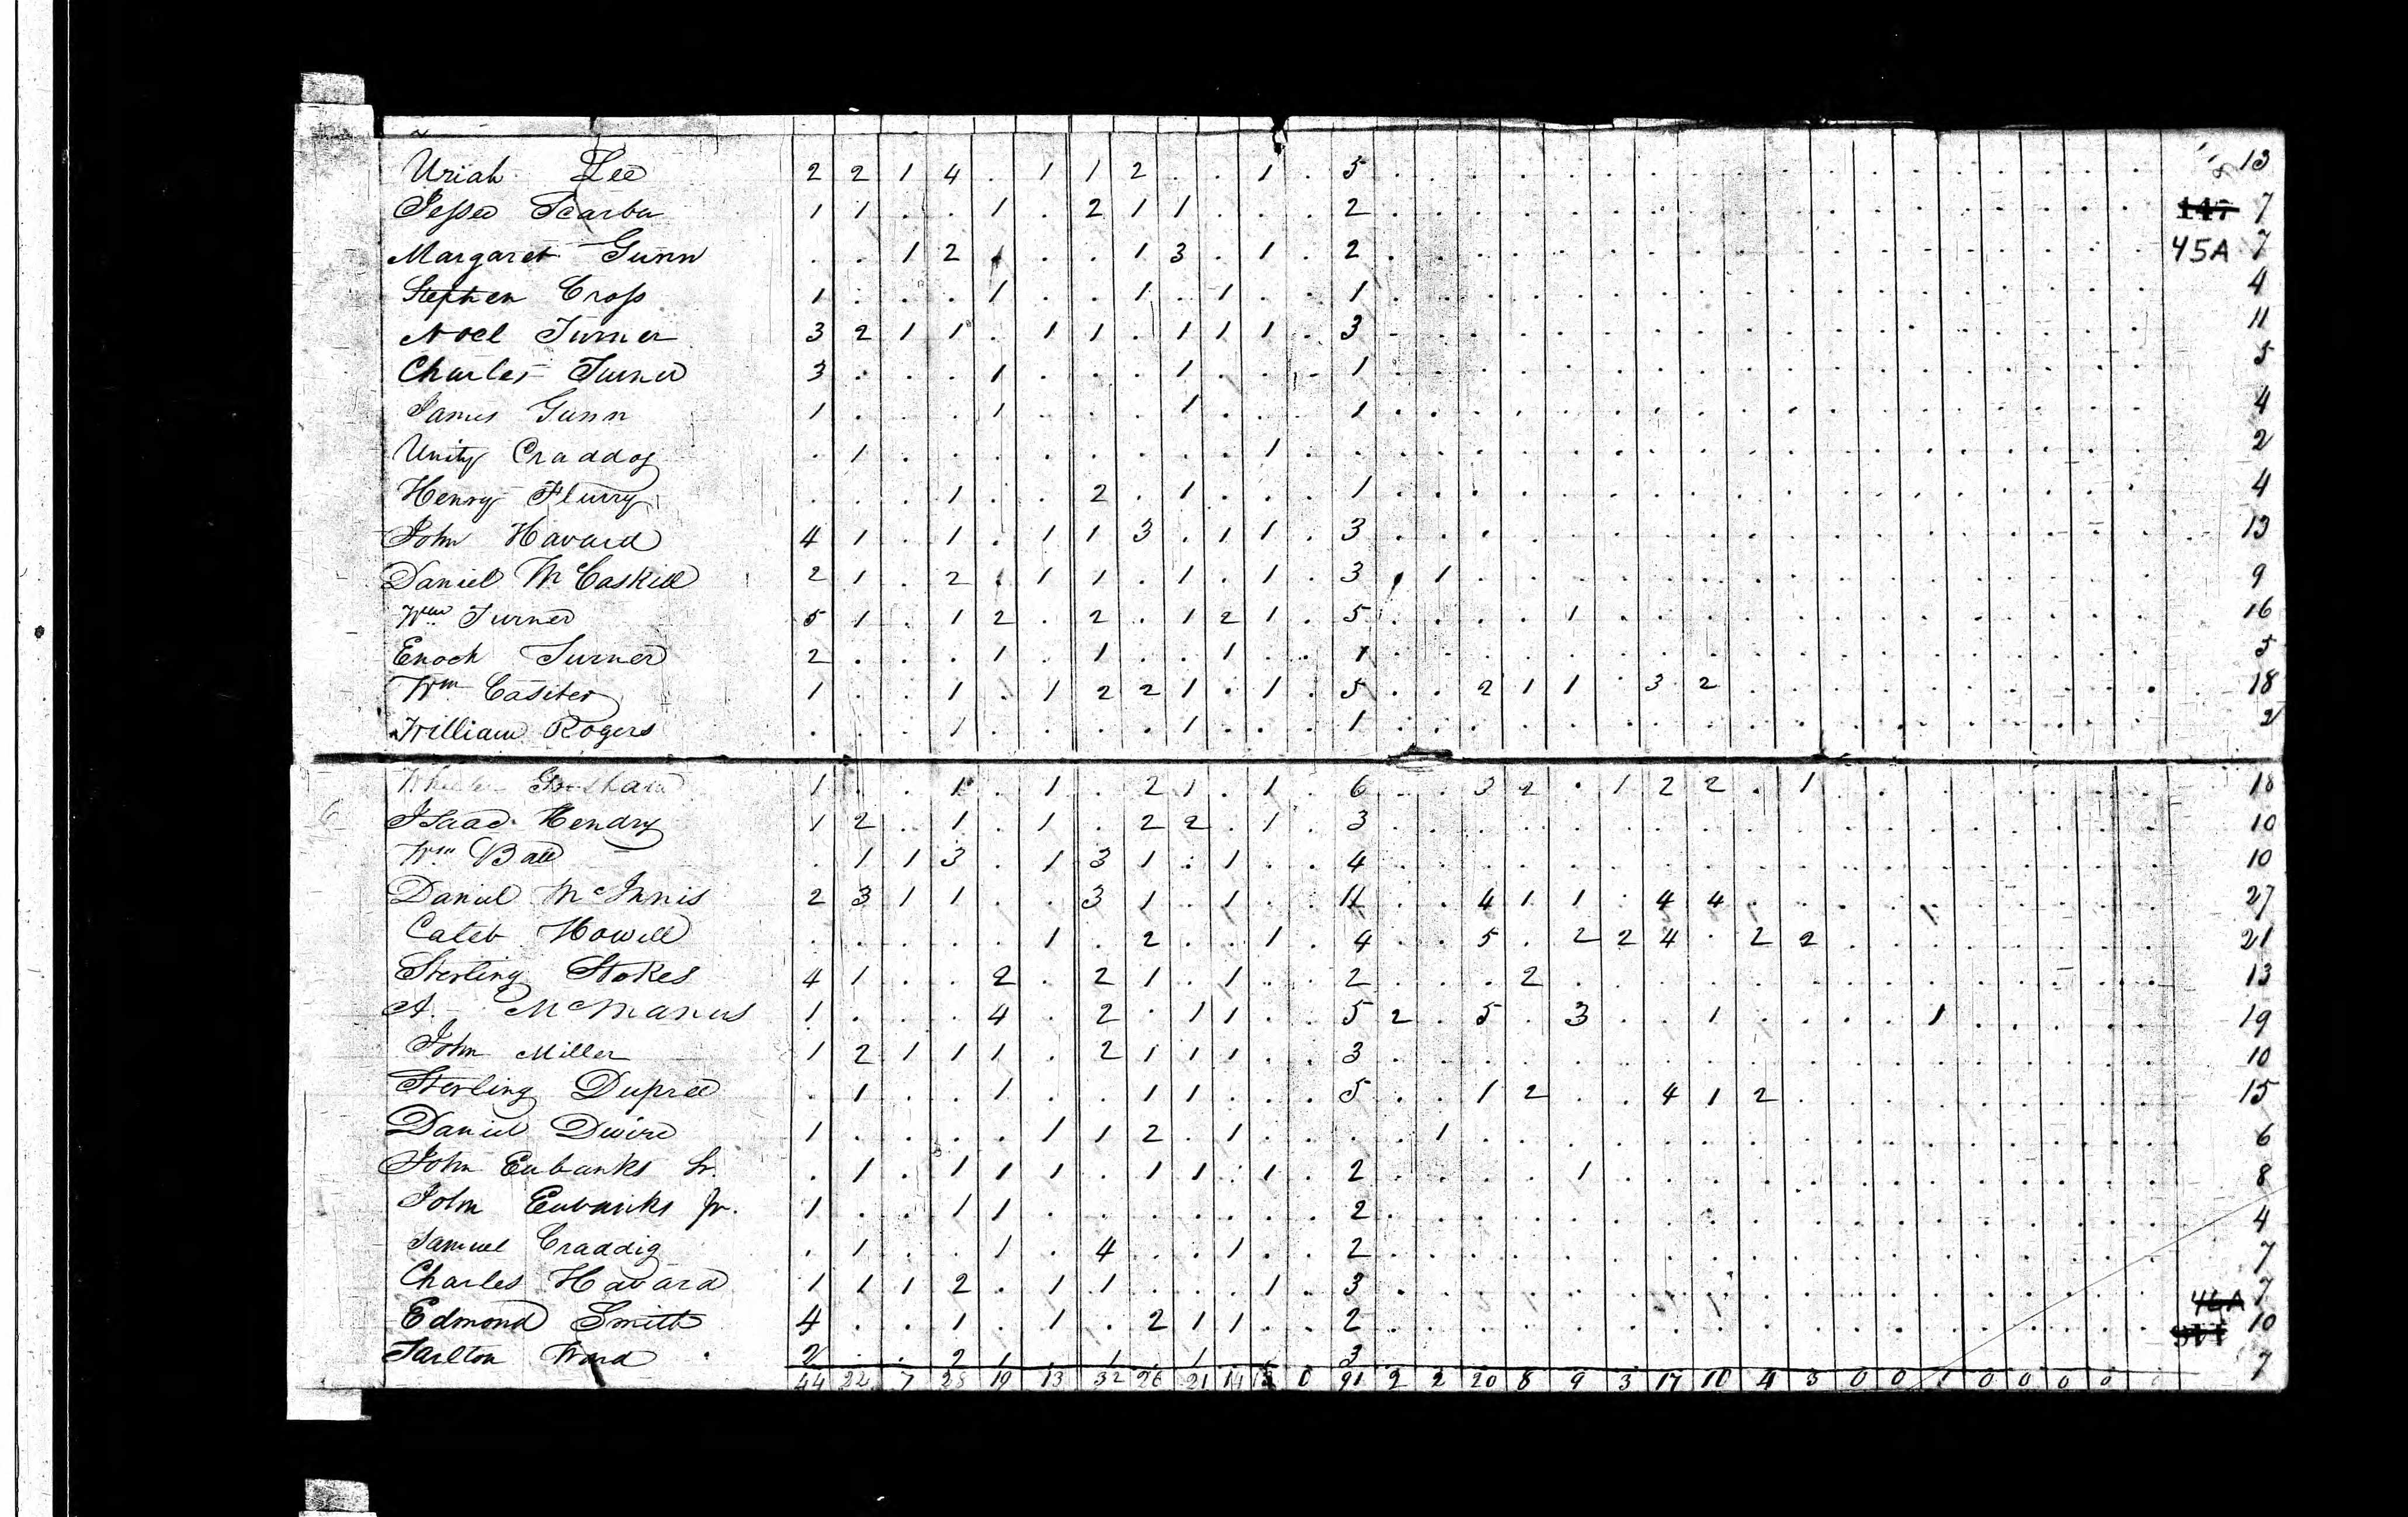 Uriah Lee 2 2 1 4 . 1 1 2 . . 1 . 5 . . . . . . . . . . . . . . . . . . 13
Jesse 1 1 . . 1 . 2 1 1 . . . 2 . . . . . . . . . . . . . . . . . . 147 7
Margaret Gunn . . 1 2 . . . 1 3 . 1 . 2 . . . . . . . . . . . . . . . . . . 45A 7
Stephen Cross 1 . . . 1 . . 1 . 1 . . 1 . . . . . . . . . . . . . . . . . . 4
Noel Turner 3 2 1 1 . 1 1 . 1 1 1 . 3 . . . . . . . . . . . . . . . . . . 11
Charles Turner 3 . . . 1 . . . 1 . . . 1 . . . . . . . . . . . . . . . . . . 5
James Gunn 1 . . . 1 . . . 1 . . . 1 . . . . . . . . . . . . . . . . . . 4
Unity Craddog . 1 . . . . . . . . 1 . . . . . . . . . . . . . . . . . . . . 2
Henry Flurry . . . 1 . . 2 . 1 . . . 1 . . . . . . . . . . . . . . . . . . 4
John Havard 4 1 . 1 . 1 1 3 . 1 1 . 3 . . . . . . . . . . . . . . . . . . 13
Daniel McCaskill 2 1 . 2 . 1 1 . 1 . 1 . 3 . 1 . . . . . . . . . . . . . . . . 9
Wm Turner 5 1 . 1 2 . 2 . 1 2 1 . 5 . . . . 1 . . . . . . . . . . . . . 16
Enoch Turner 2 . . . 1 . 1 . . 1 . . 1 . . . . . . . . . . . . . . . . . . 5
Wm Casiter 1 . . 1 . 1 2 2 1 . 1 . 5 . . 2 1 1 . 3 2 . . . . . . . . . . 18
William Rogers . . . 1 . . . . 1 . . . 1 . . . . . . . . . . . . . . . . . . 2
1 . . 1 . 1 . 2 1 . 1 . 6 . . 3 2 . 1 2 2 . 1 . . . . . . . . 18
Isaac Hendry 1 2 . 1 . 1 . 2 2 . 1 . 3 . . . . . . . . . . . . . . . . . . 10
Wm Ball . 1 1 3 . 1 3 1 . 1 . . 4 . . . . . . . . . . . . . . . . . . 10
Daniel McInnis 2 3 1 1 . . 3 1 . 1 . . 11 . . 4 1 1 . 4 4 . . . . . . . . . . 27
Caleb Howell . . . . . 1 . 2 . . 1 . 4 . . 5 . 2 2 4 . 2 2 . . . . . . . . 21
Sterling Stokes 4 1 . . 2 . 2 1 . 1 . . 2 . . . 2 . . . . . . . . . . . . . . 13
A. McManus 1 . . . 4 . 2 . 1 1 . . 5 2 . 5 . 3 . . 1 . . . . 1 . . . . . 19
John Miller 1 2 1 1 1 . 2 1 1 1 . . 3 . . . . . . . . . . . . . . . . . . 10
Sterling Dupree . 1 . . 1 . . 1 1 . . . 5 . . 1 2 . . 4 1 2 . . . . . . . . . 15
Daniel 1 . . . . 1 1 2 . 1 . . . . 1 . . . . . . . . . . . . . . . . 6
John Eubanks Sr. . 1 . 1 1 1 . 1 1 . 1 . 2 . . . . 1 . . . . . . . . . . . . . 8
John Eubanks Jr. 1 . . 1 1 . . . . . . . 2 . . . . . . . . . . . . . . . . . . 4
Samuel Craddig . 1 . . 1 . 4 . . 1 . . 2 . . . . . . . . . . . . . . . . . . 7
Charles Havard 1 1 1 2 . 1 1 . . . 1 . 3 . . . . . . . . . . . . . . . . . . 46A 7
Edmond Smith 4 . . 1 . 1 . 2 1 1 . . 2 . . . . . . . . . . . . . . . . . . 10
Tarlton Ward 2 . . 2 1 . 1 . 1 . . . 3 7
44 22 7 28 19 13 32 26 21 14 0 91 2 2 20 8 9 3 17 10 4 3 0 0 1 0 0 0 0